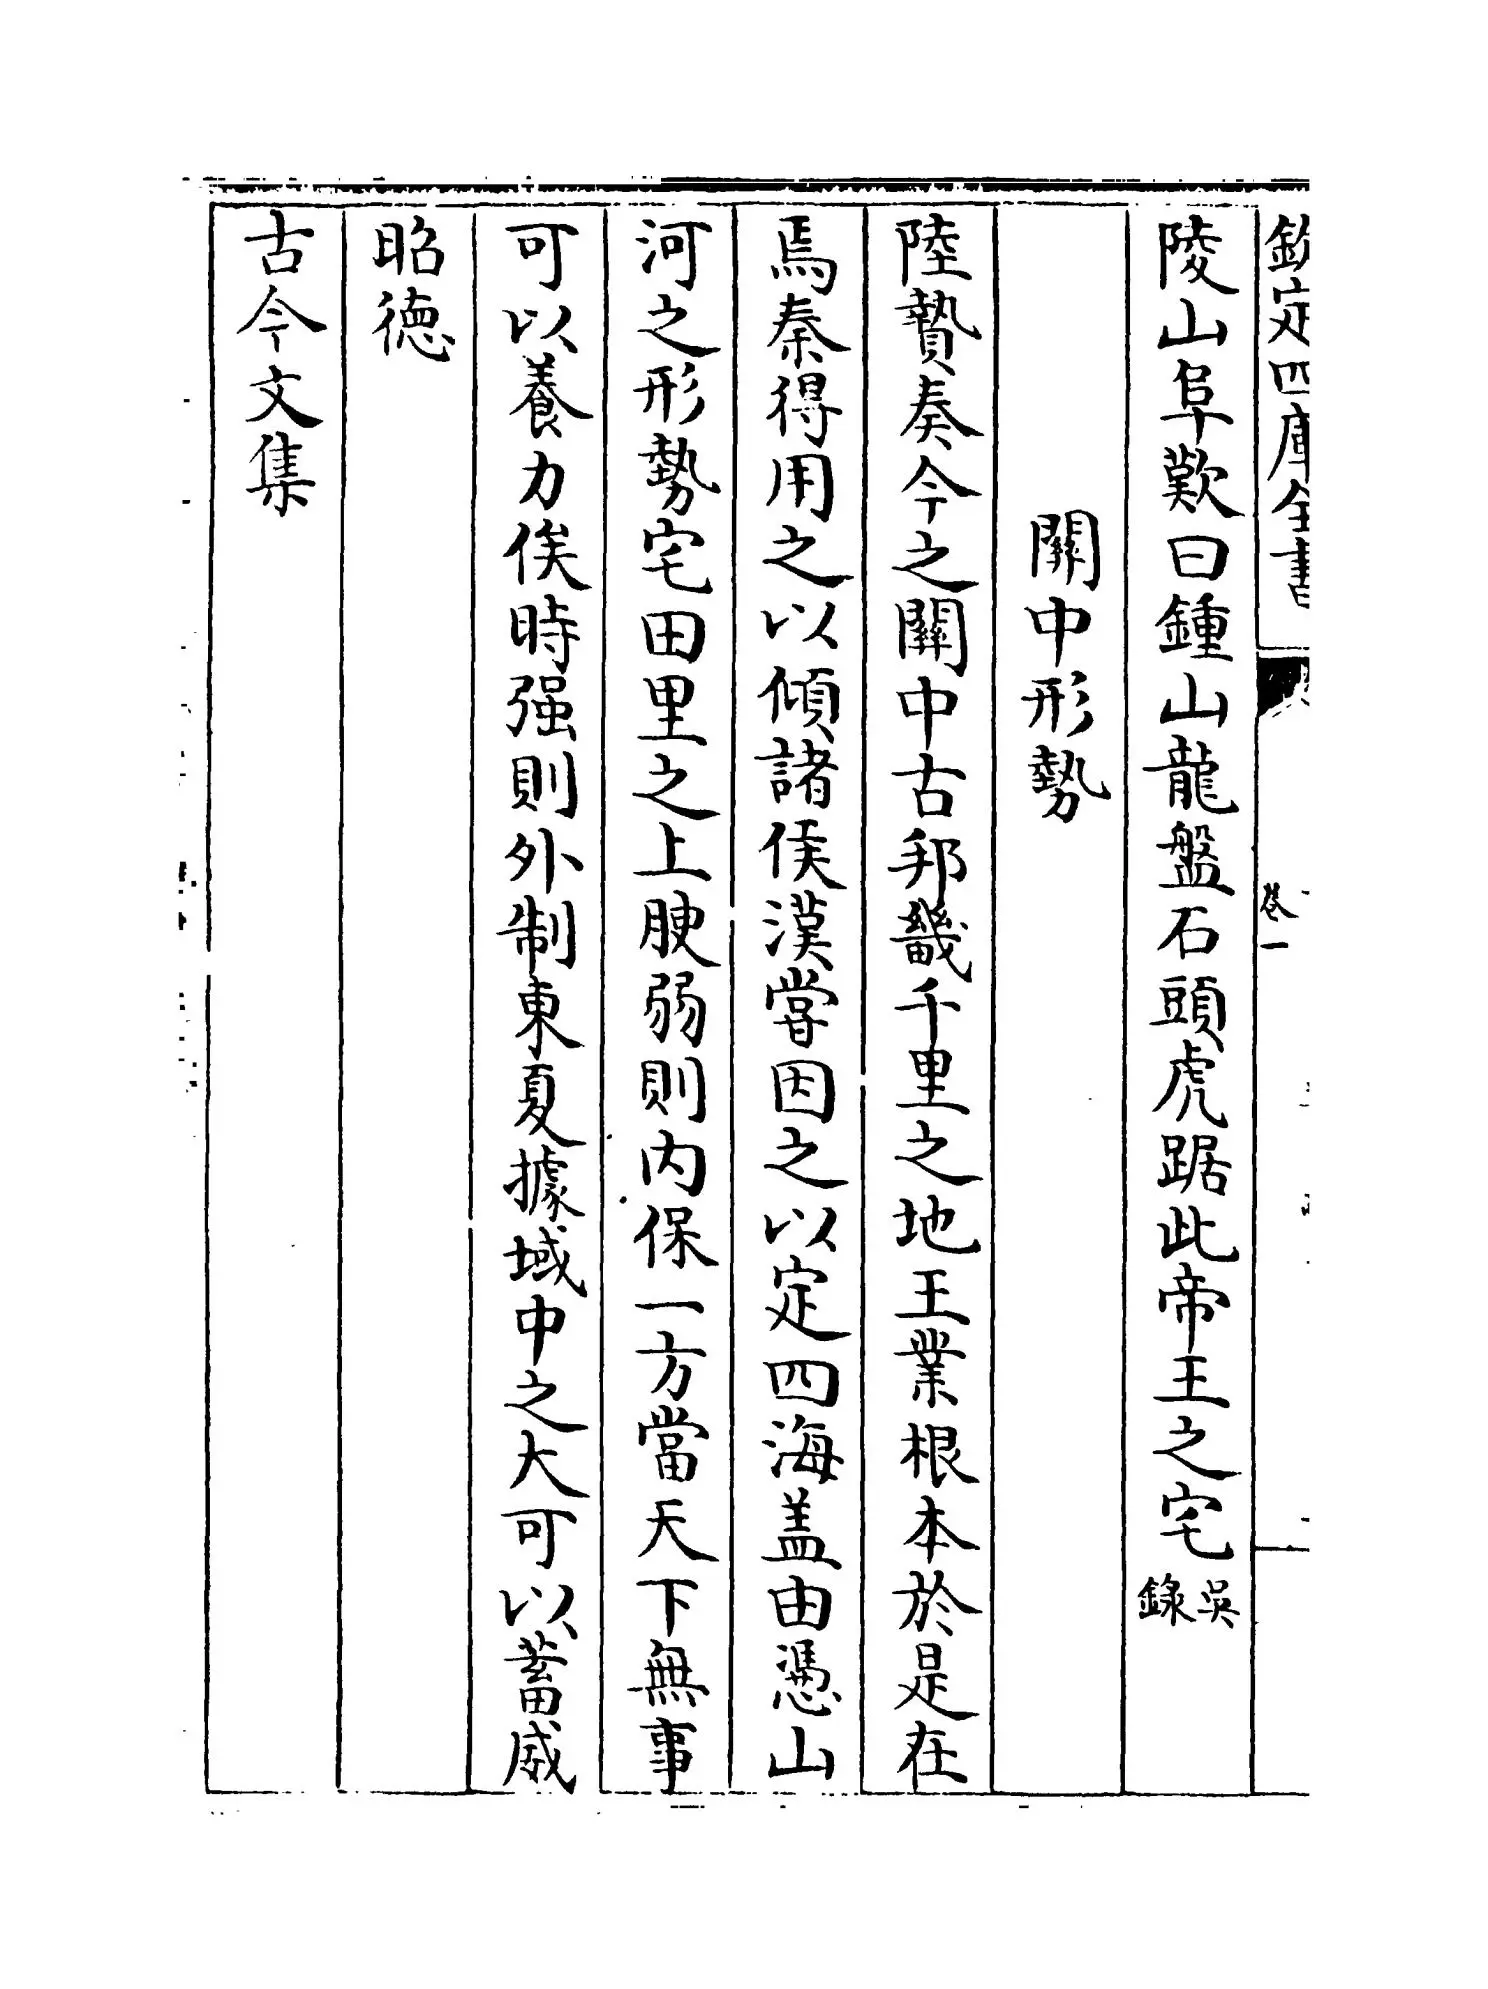 欽定四庫全書
卷一
陵山阜歎曰鍾山龍盤石頭虎踞此帝王之宅吳錄
關中形勢
陸贄奏今之關中古邦畿千里之地王業根本於是在
焉秦得用之以傾諸侯漢嘗因之以定四海盖由憑山
河之形勢宅田里之上腴弱則内保一方當天下無事
可以養力俟時强則外制東夏據域中之大可以蓄威
昭德
古今文集